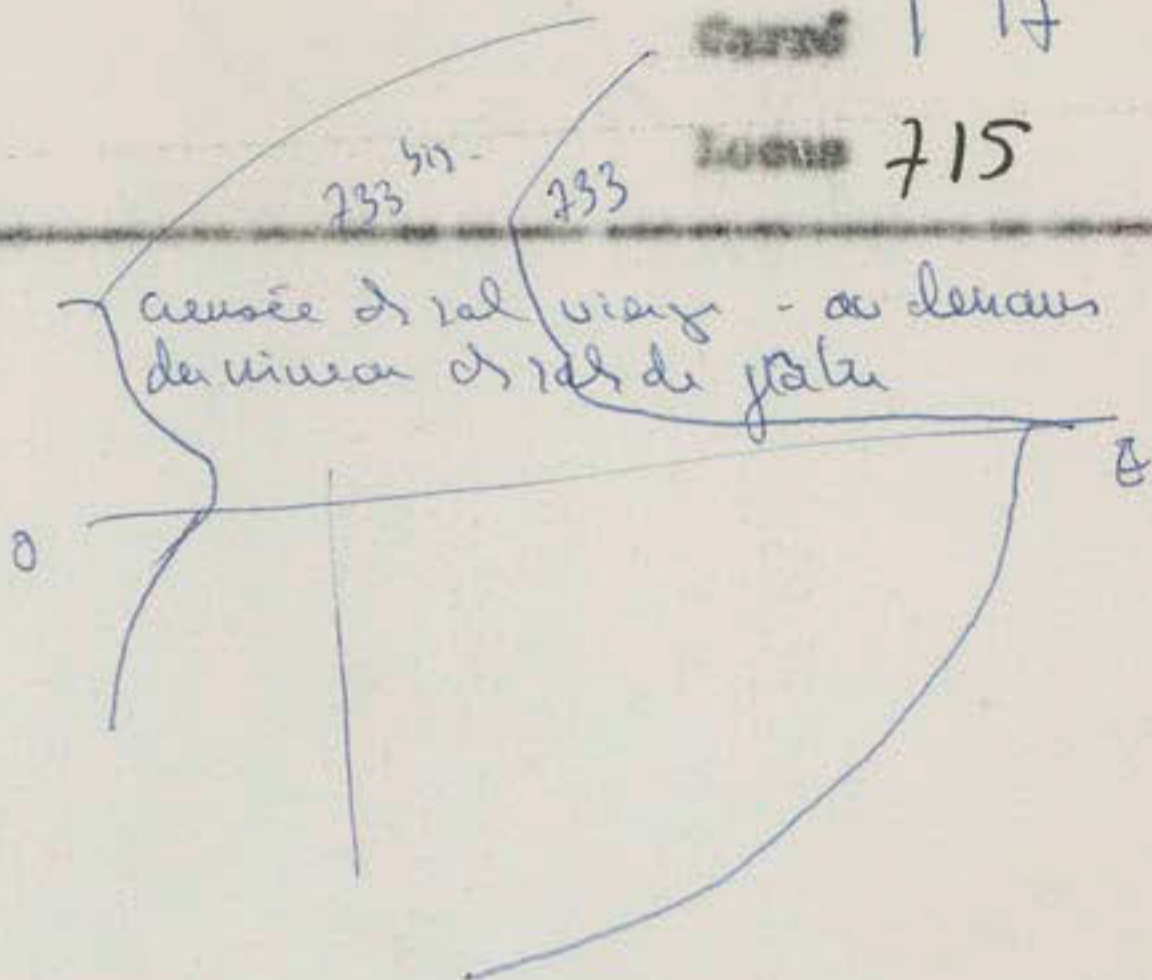 Carré 1 17
Locus 715
733 bis 733
creusée ds sol vierge - au dessus
du niveau ds sols de plâtre
O E